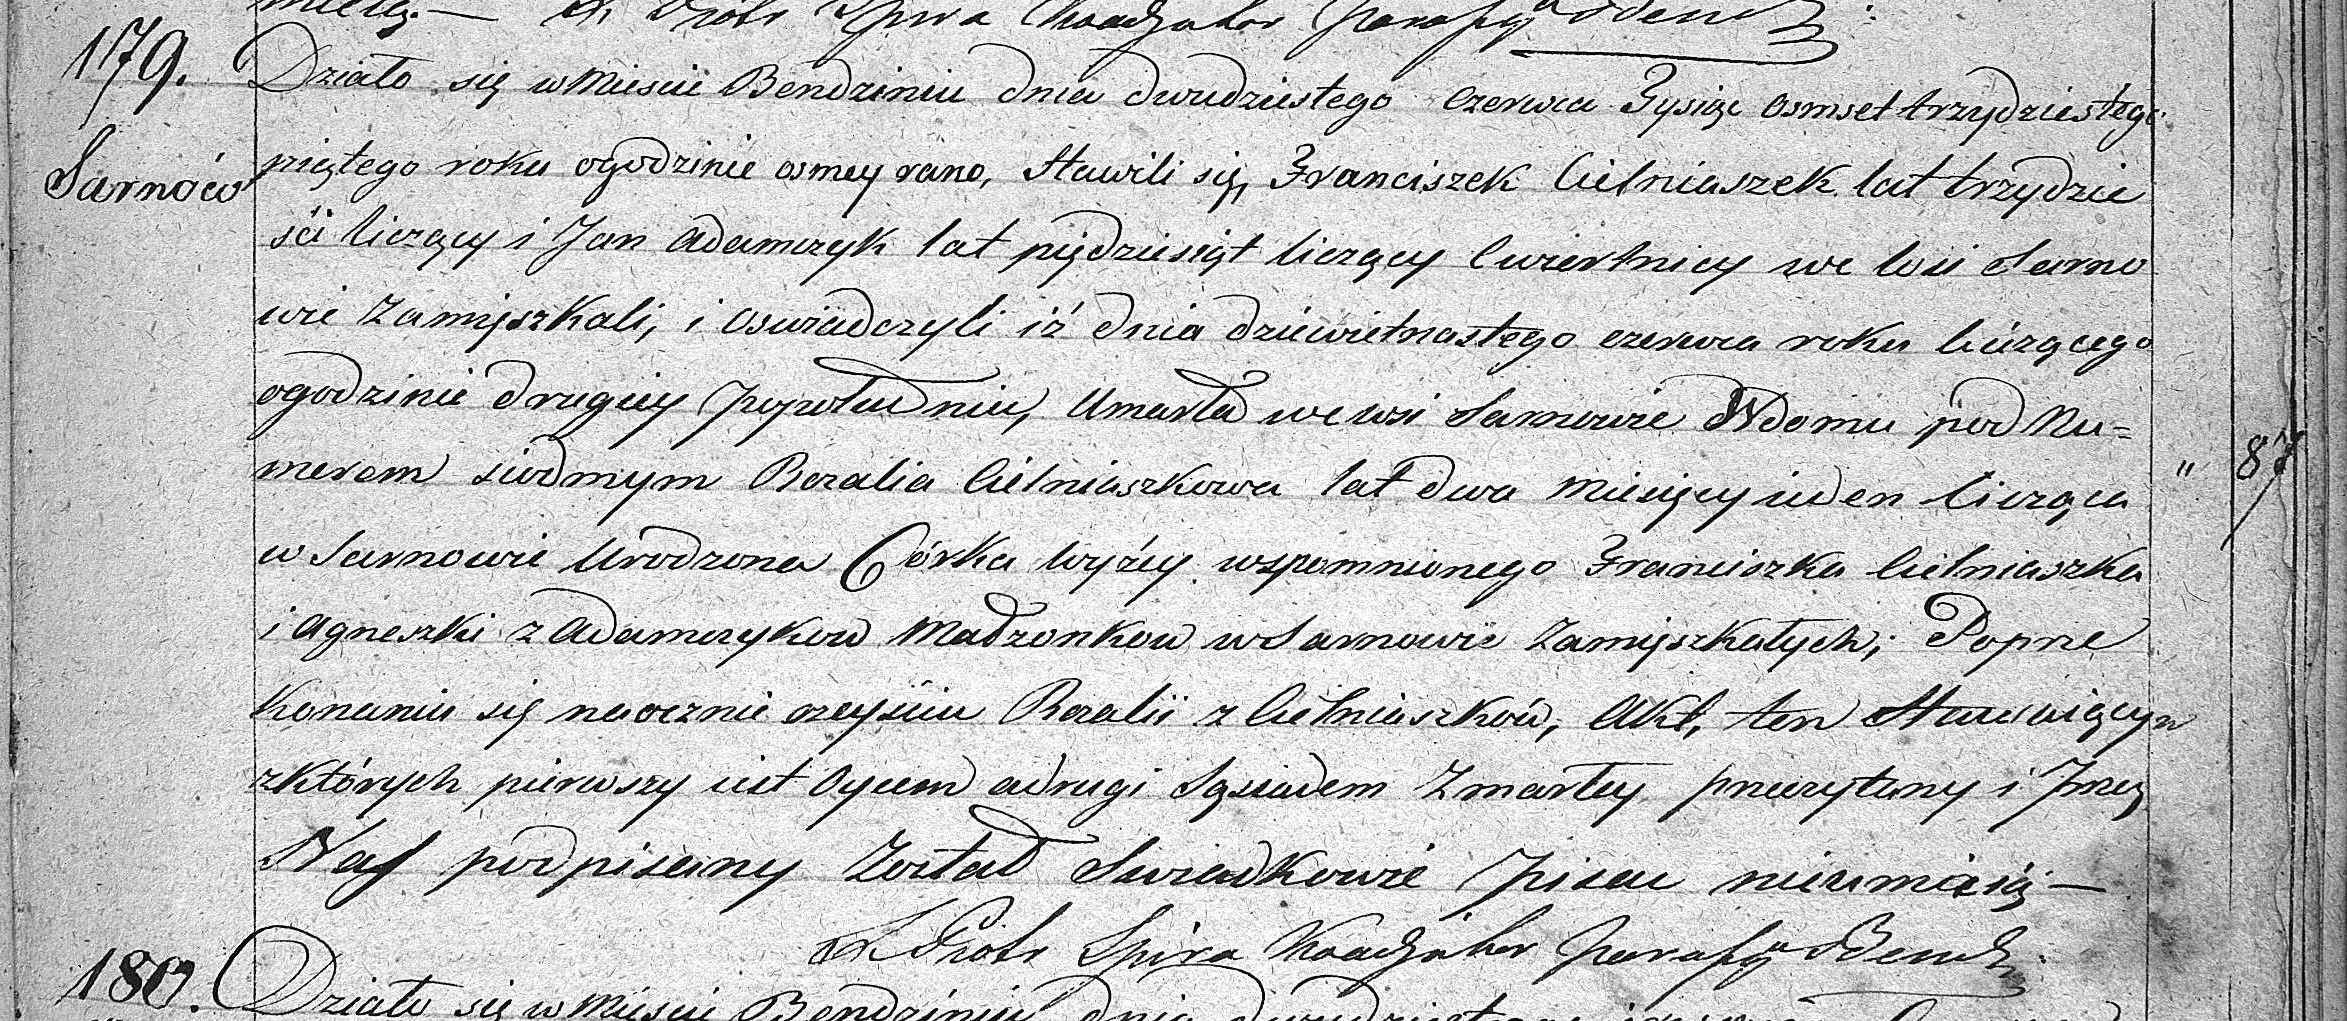 X. Piotr Spira Koadjutor Parafij Bend:
179.
Działo się w Miescie Bendziniu dnia dwudziestego czerwca Tysiąc osmset trzydziestego
Sarnów
piątego roku ogodzinie osmey rano, Stawili się, Franciszek Cieśniaszek lat trzydzie
ści liczący i Jan Adamczyk lat pięдziesiąt liczący Cwiertnicy we wsi Sarno
wie zamięszkali, i oswiadczyli iż dnia dziewietnastego czerwca roku bieżącego
ogodzinie drugiey popołudniu, Umarła we wsi Sarnowie Wdomu pod Nu=
merem siodmym Rozalia Cieśniaszkowa lat dwa Miesięcy ieden licząca
" 87
w Sarnowie Urodzona Córka Wyżey wspomnionego Franciszka Cieśniaszka
i Agneszki z Adamczykow Madzonkow w Sarnowie zamięszkałych; Poprze
konaniu się naocznie ozeyściu Rozalii z Cieśniaszków, Akt, ten Stawaiącym
zktórych pierwszy iest Oycem adrugi Sąsiadem Zmarłey przeczytany i Przez
Nas podpisany Został Swiadkowie Pisać nieumieią —
X. Piotr Spira Koadjutor Parafij Bend:
180.
Działo się w Miescie Bendziniu dnia dwudziestego